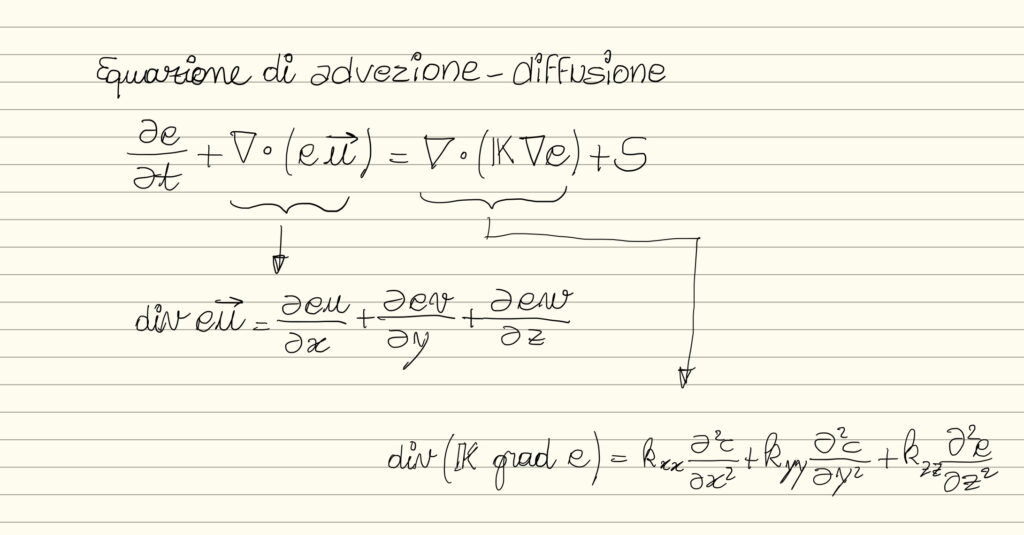 Equazione di advezione - diffusione
∂c/∂t + ∇·(c u⃗) = ∇·(𝕂∇c) + S
div c u⃗ = ∂cu/∂x + ∂cv/∂y + ∂cw/∂z
div(𝕂 grad c) = kxx ∂²c/∂x² + kyy ∂²c/∂y² + kzz ∂²c/∂z²